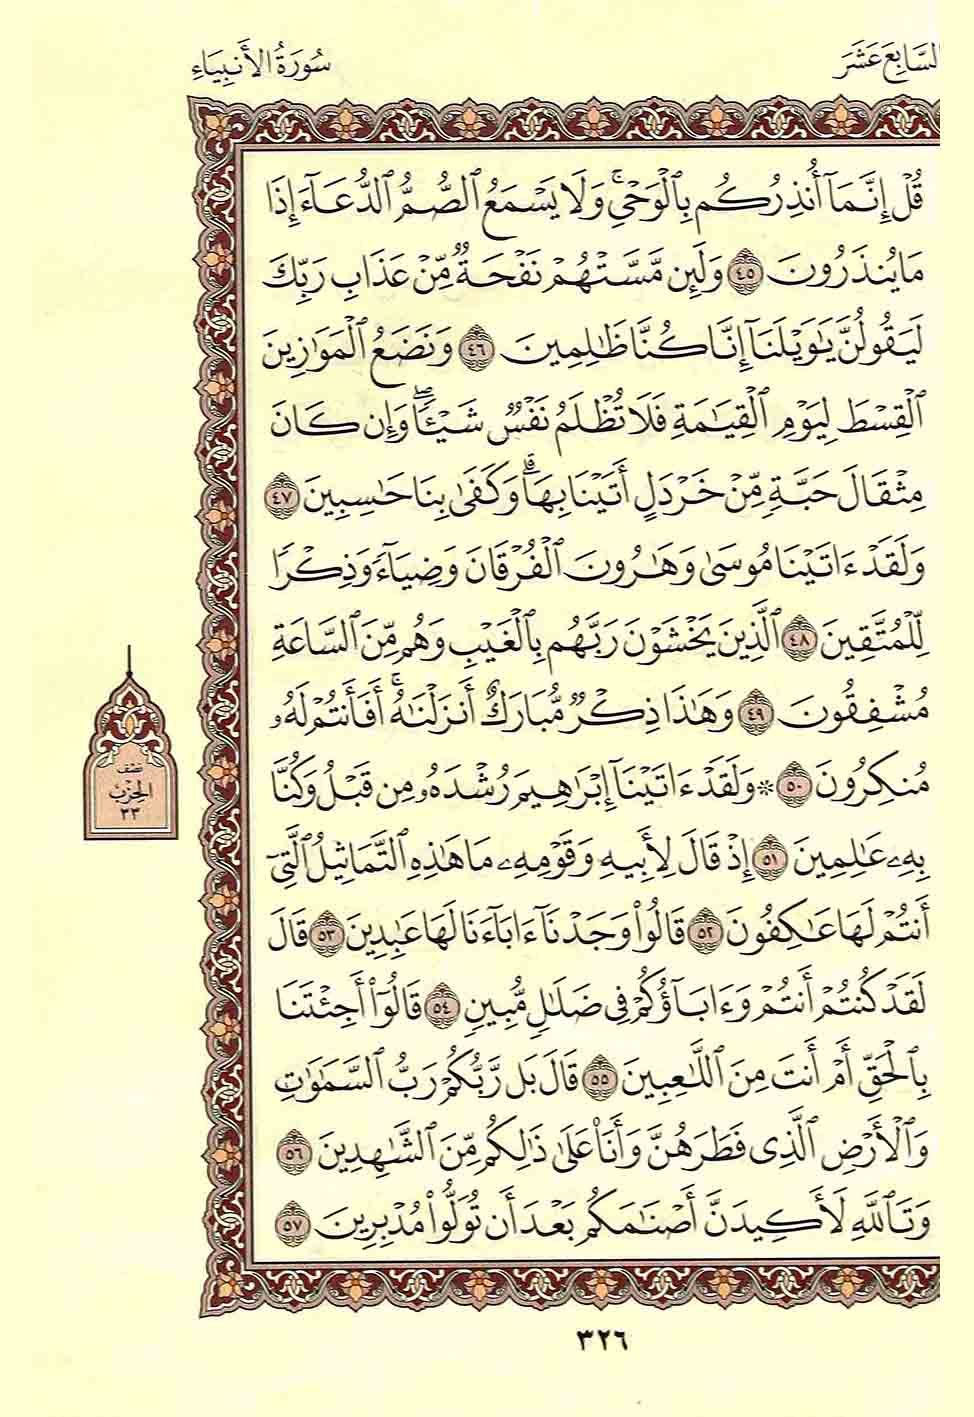 السَّابِعَ عَشَرَ
سُورَةُ الأَنبِيَاءِ
قُلْ إِنَّمَآ أُنذِرُكُم بِٱلْوَحْىِۚ وَلَا يَسْمَعُ ٱلصُّمُّ ٱلدُّعَآءَ إِذَا
مَا يُنذَرُونَ ٤٥ وَلَئِن مَّسَّتْهُمْ نَفْحَةٌ مِّنْ عَذَابِ رَبِّكَ
لَيَقُولُنَّ يَٰوَيْلَنَآ إِنَّا كُنَّا ظَٰلِمِينَ ٤٦ وَنَضَعُ ٱلْمَوَٰزِينَ
ٱلْقِسْطَ لِيَوْمِ ٱلْقِيَٰمَةِ فَلَا تُظْلَمُ نَفْسٌ شَيْـًٔاۖ وَإِن كَانَ
مِثْقَالَ حَبَّةٍ مِّنْ خَرْدَلٍ أَتَيْنَا بِهَاۗ وَكَفَىٰ بِنَا حَٰسِبِينَ ٤٧
وَلَقَدْ ءَاتَيْنَا مُوسَىٰ وَهَٰرُونَ ٱلْفُرْقَانَ وَضِيَآءً وَذِكْرًا
لِّلْمُتَّقِينَ ٤٨ ٱلَّذِينَ يَخْشَوْنَ رَبَّهُم بِٱلْغَيْبِ وَهُم مِّنَ ٱلسَّاعَةِ
مُشْفِقُونَ ٤٩ وَهَٰذَا ذِكْرٌ مُّبَارَكٌ أَنزَلْنَٰهُۚ أَفَأَنتُمْ لَهُۥ
مُنكِرُونَ ٥٠ ۞ وَلَقَدْ ءَاتَيْنَآ إِبْرَٰهِيمَ رُشْدَهُۥ مِن قَبْلُ وَكُنَّا
بِهِۦ عَٰلِمِينَ ٥١ إِذْ قَالَ لِأَبِيهِ وَقَوْمِهِۦ مَا هَٰذِهِ ٱلتَّمَاثِيلُ ٱلَّتِىٓ
أَنتُمْ لَهَا عَٰكِفُونَ ٥٢ قَالُوا۟ وَجَدْنَآ ءَابَآءَنَا لَهَا عَٰبِدِينَ ٥٣ قَالَ
لَقَدْ كُنتُمْ أَنتُمْ وَءَابَآؤُكُمْ فِى ضَلَٰلٍ مُّبِينٍ ٥٤ قَالُوٓا۟ أَجِئْتَنَا
بِٱلْحَقِّ أَمْ أَنتَ مِنَ ٱللَّٰعِبِينَ ٥٥ قَالَ بَل رَّبُّكُمْ رَبُّ ٱلسَّمَٰوَٰتِ
وَٱلْأَرْضِ ٱلَّذِى فَطَرَهُنَّ وَأَنَا۠ عَلَىٰ ذَٰلِكُم مِّنَ ٱلشَّٰهِدِينَ ٥٦
وَتَٱللَّهِ لَأَكِيدَنَّ أَصْنَٰمَكُم بَعْدَ أَن تُوَلُّوا۟ مُدْبِرِينَ ٥٧
نصف
الحِزب
٣٣
٣٢٦